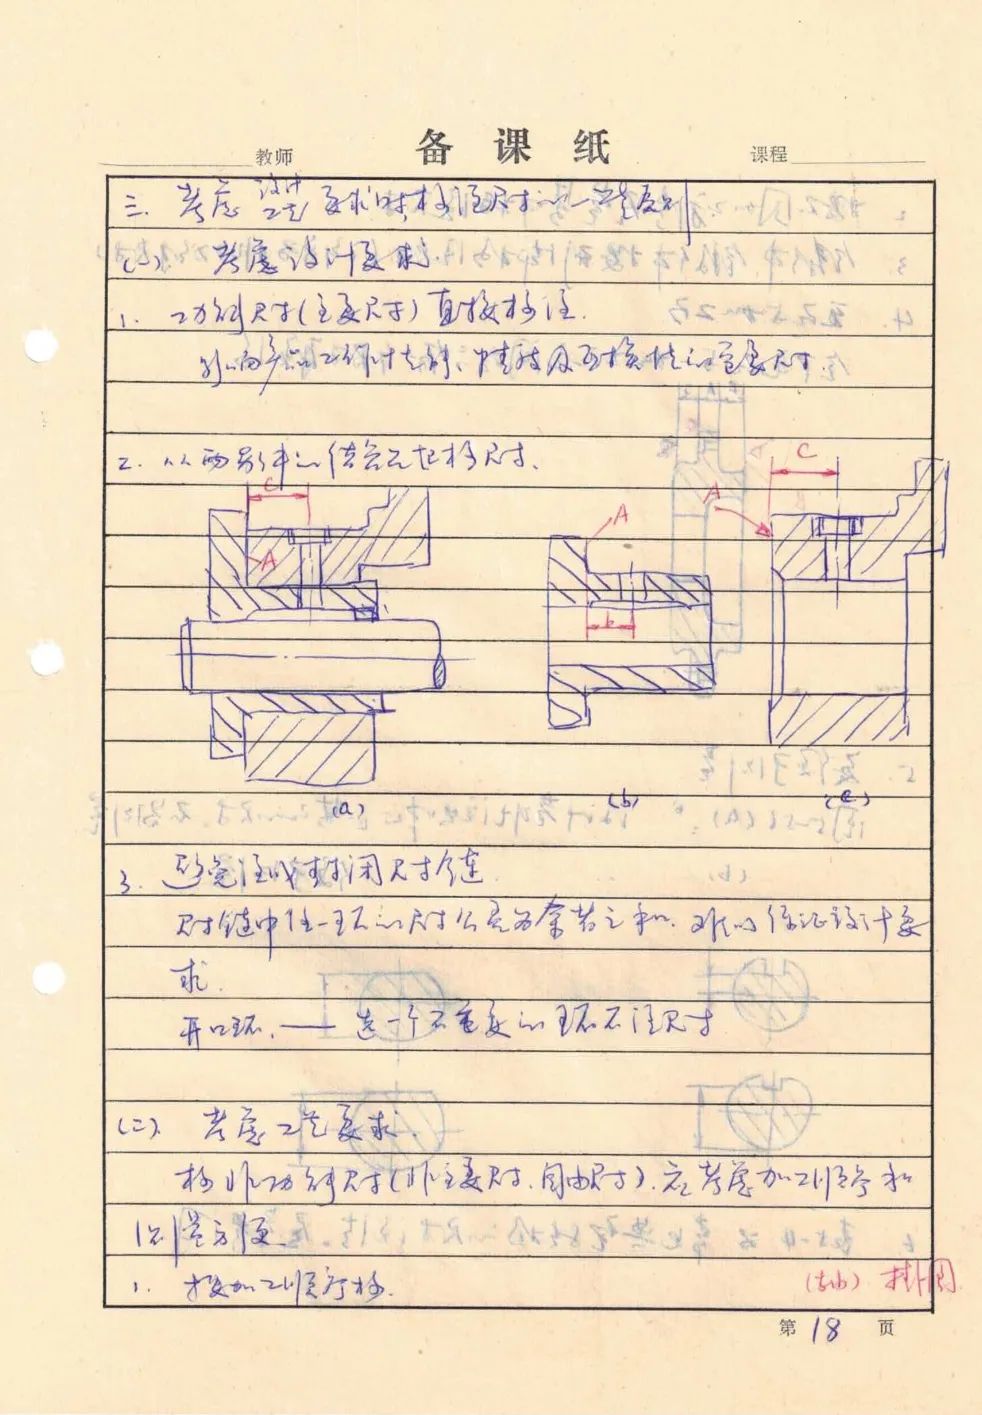 备课纸
教师
课程
三. 考虑设计工艺要求时,标注尺寸的一些原则
(一). 考虑设计要求.
1. 功能尺寸(主要尺寸)直接标注.
影响产品工作性能、精度及互换性的重要尺寸.
2. 从两零件的结合面起标尺寸.
C
A
A
b
A
C
(a)
(b)
(c)
3. 避免注成封闭尺寸链.
尺寸链中任一环的尺寸公差为余者之和. 难以保证设计要
求.
开口环. —— 选一个不重要的环不注尺寸
(二). 考虑工艺要求.
标非功能尺寸(非主要尺寸.自由尺寸).应考虑加工顺序和
测量方便.
1. 按加工顺序标.
挂图
第 18 页